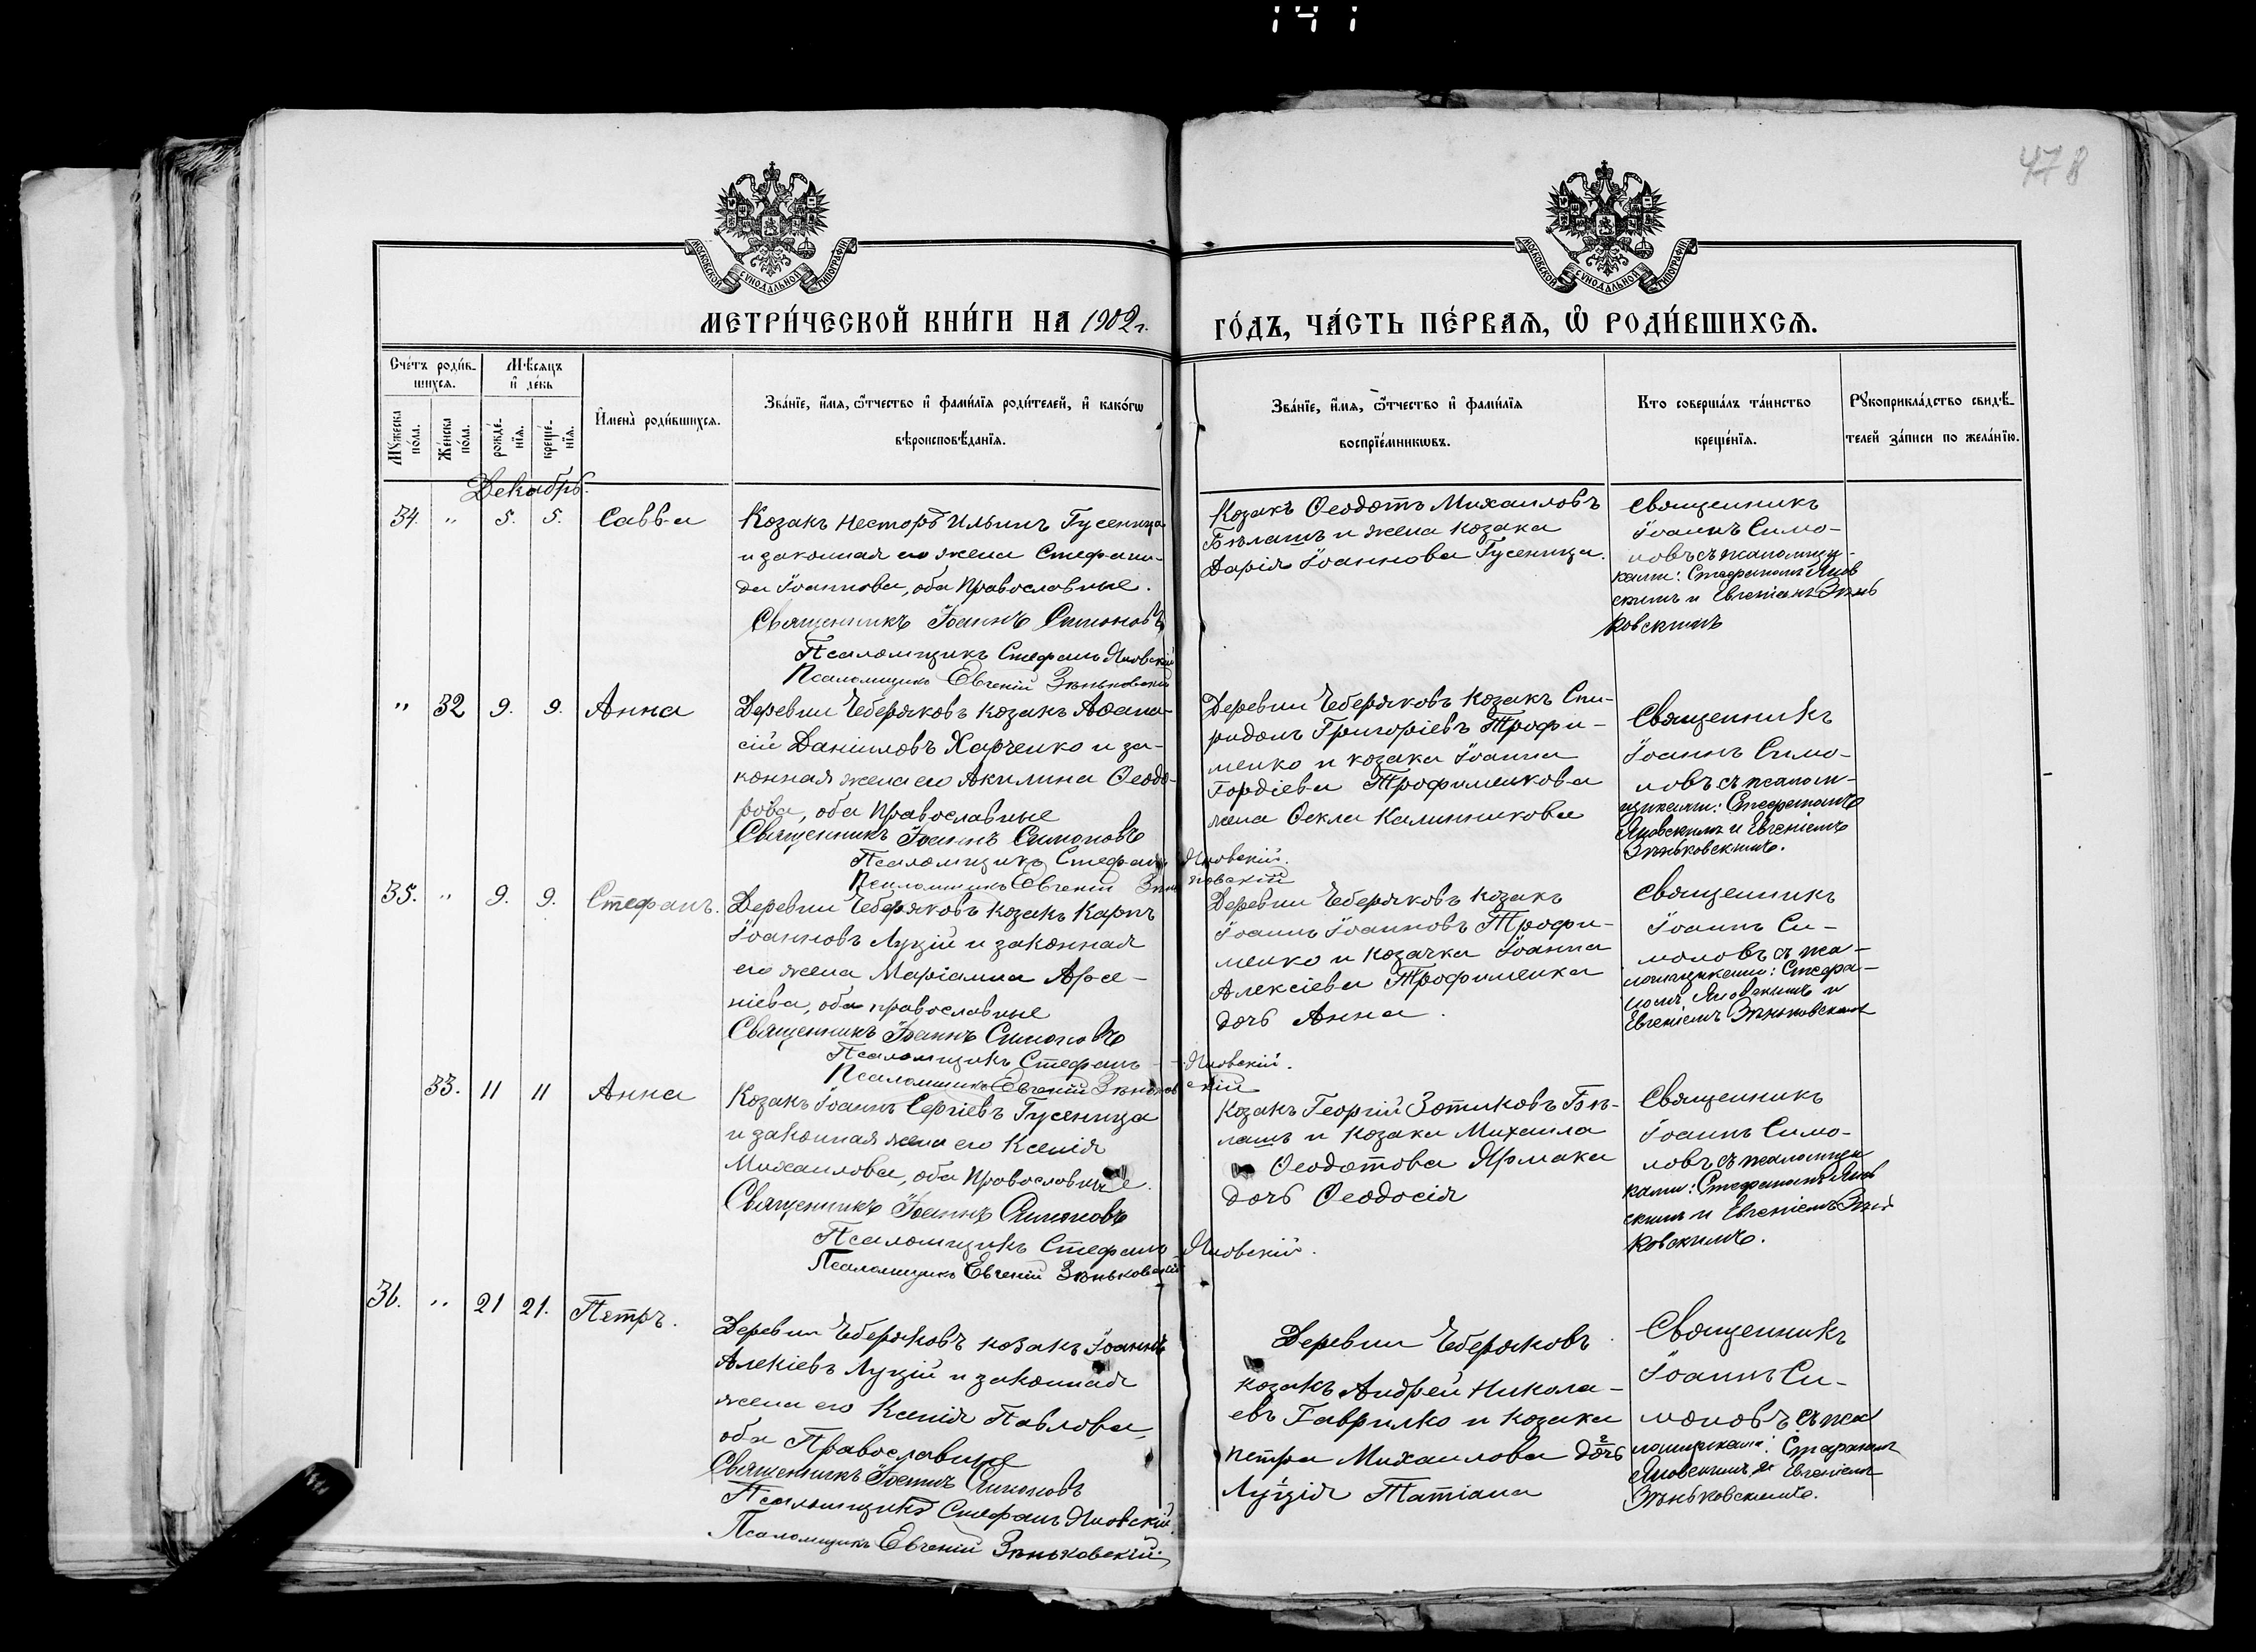 141
478
МОСКОВСКОЙ СѴНОДАЛЬНОЙ ТИПОГРАФІИ
МОСКОВСКОЙ СѴНОДАЛЬНОЙ ТИПОГРАФІИ
МЕТРИ́ЧЕСКОЙ КНИ́ГИ НА 1902 г.
ГО́ДЪ, ЧА́СТЬ ПЕ́РВАЯ, Ѡ҆ РОДИ́ВШИХСЯ.
Сче́тъ роди́в-
шихся.
Мѣ́сяцъ
и҆ де́нь
Му́жеска
по́ла.
Же́нска
по́ла.
рожде́-
нїя.
креще́-
нїя.
И҆мена̀ роди́вшихся.
Зва́нїе, и҆́мя, ѻ҆́тчество и҆ фами́лїя роди́телей, и҆ како́гѡ
вѣроисповѣ́данїя.
Зва́нїе, и҆́мя, ѻ҆́тчество и҆ фами́лїя
воспрїе́мникѡвъ.
Кто соверша́лъ та́инство
креще́нїя.
Рукоприкла́дство свидѣ́-
телей за́писи по жела́нїю.
Декабрь.
34. " 5. 5. Савва
Козакъ Несторъ Ильинъ Гусеница
и законная его жена Стефани-
да Іоаннова, оба Православные.
Священникъ Іоаннъ Симоновъ
Псаломщикъ Стефанъ Яновскій
Псаломщикъ Евгеній Зѣньковскій
Козакъ Ѳеодотъ Михаиловъ
Бѣлашъ и жена козака
Дарія Іоаннова Гусеница.
Священникъ
Іоаннъ Симо-
новъ съ псаломщи-
ками: Стефаномъ Янов
скимъ и Евгеніемъ Зѣнь
ковскимъ
" 32 9. 9. Анна
Деревни Чеберяковъ козакъ Аѳана-
сій Даніиловъ Харченко и за-
конная жена его Акилина Ѳеодо-
рова, оба Православные
Священникъ Іоаннъ Симоновъ
Псаломщикъ Стефанъ Яновскій.
Псаломщикъ Евгеній Зѣньковскій
Деревни Чеберяковъ козакъ Спи-
ридонъ Григоріевъ Трофи-
менко и козака Іоанна
Гордіева Трофименкова
жена Ѳекла Калинникова
Священникъ
Іоаннъ Симо-
новъ съ псалом-
щиками: Стефаномъ
Яновскимъ и Евгеніемъ
Зѣньковскимъ.
35. " 9. 9. Стефанъ.
Деревни Чеберяковъ козакъ Карпъ
Іоанновъ Луцій и законная
его жена Маріамна Арсе-
ніева, оба православные
Священникъ Іоаннъ Симоновъ
Псаломщикъ Стефанъ - - Яновскій.
Псаломщикъ Евгеній Зѣньковскій
Деревни Чеберяковъ козакъ
Іоаннъ Іоанновъ Трофи-
менко и козачка Іоанна
Алексіева Трофименка
дочь Анна.
Священникъ
Іоаннъ Си-
моновъ съ пса-
ломщиками: Стефа-
номъ Яновскимъ и
Евгеніемъ Зѣньковскимъ
33. 11 11 Анна
Козакъ Іоаннъ Сергіевъ Гусеница
и законная жена его Ксенія
Михаилова, оба Православные.
Священникъ Іоаннъ Симоновъ
Псаломщикъ Стефанъ Яновскій.
Псаломщикъ Евгеній Зѣньковскій
Козакъ Георгій Зотиковъ Бѣ-
лашъ и козака Михаила
Ѳеодотова Ярмака
дочь Ѳеодосія
Священникъ
Іоаннъ Симо-
новъ съ псаломщи
ками: Стефаномъ Янов
скимъ и Евгеніемъ Зѣнь
ковскимъ.
36. " 21 21. Петръ.
Деревни Чеберяковъ козакъ Іоаннъ
Алекіевъ Луцій и законная
жена его Ксенія Павлова,
оба Православные
Священникъ Іоаннъ Симоновъ
Псаломщикъ Стефанъ Яновскій.
Псаломщикъ Евгеній Зѣньковскій.
Деревни Чеберяковъ
козакъ Андрей Никола-
евъ Гаврилко и козака
Петра Михаилова дочь
Луція Татіана
Священникъ
Іоаннъ Си-
моновъ съ пса
ломщиками: Стефаномъ
Яновскимъ и Евгеніемъ
Зѣньковскимъ.